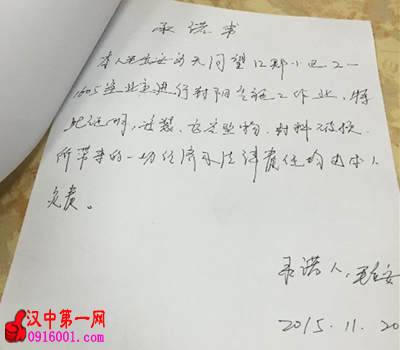 承诺书
本人 天同望江郡小区2-
1605室业主进行封阳台施工作业,特
此证明,安装、 坠物、材料破损
所带来的一切经济及法律责任均由本人
负责。
承诺人:
2015.11.20
汉中第一网
0916001.com